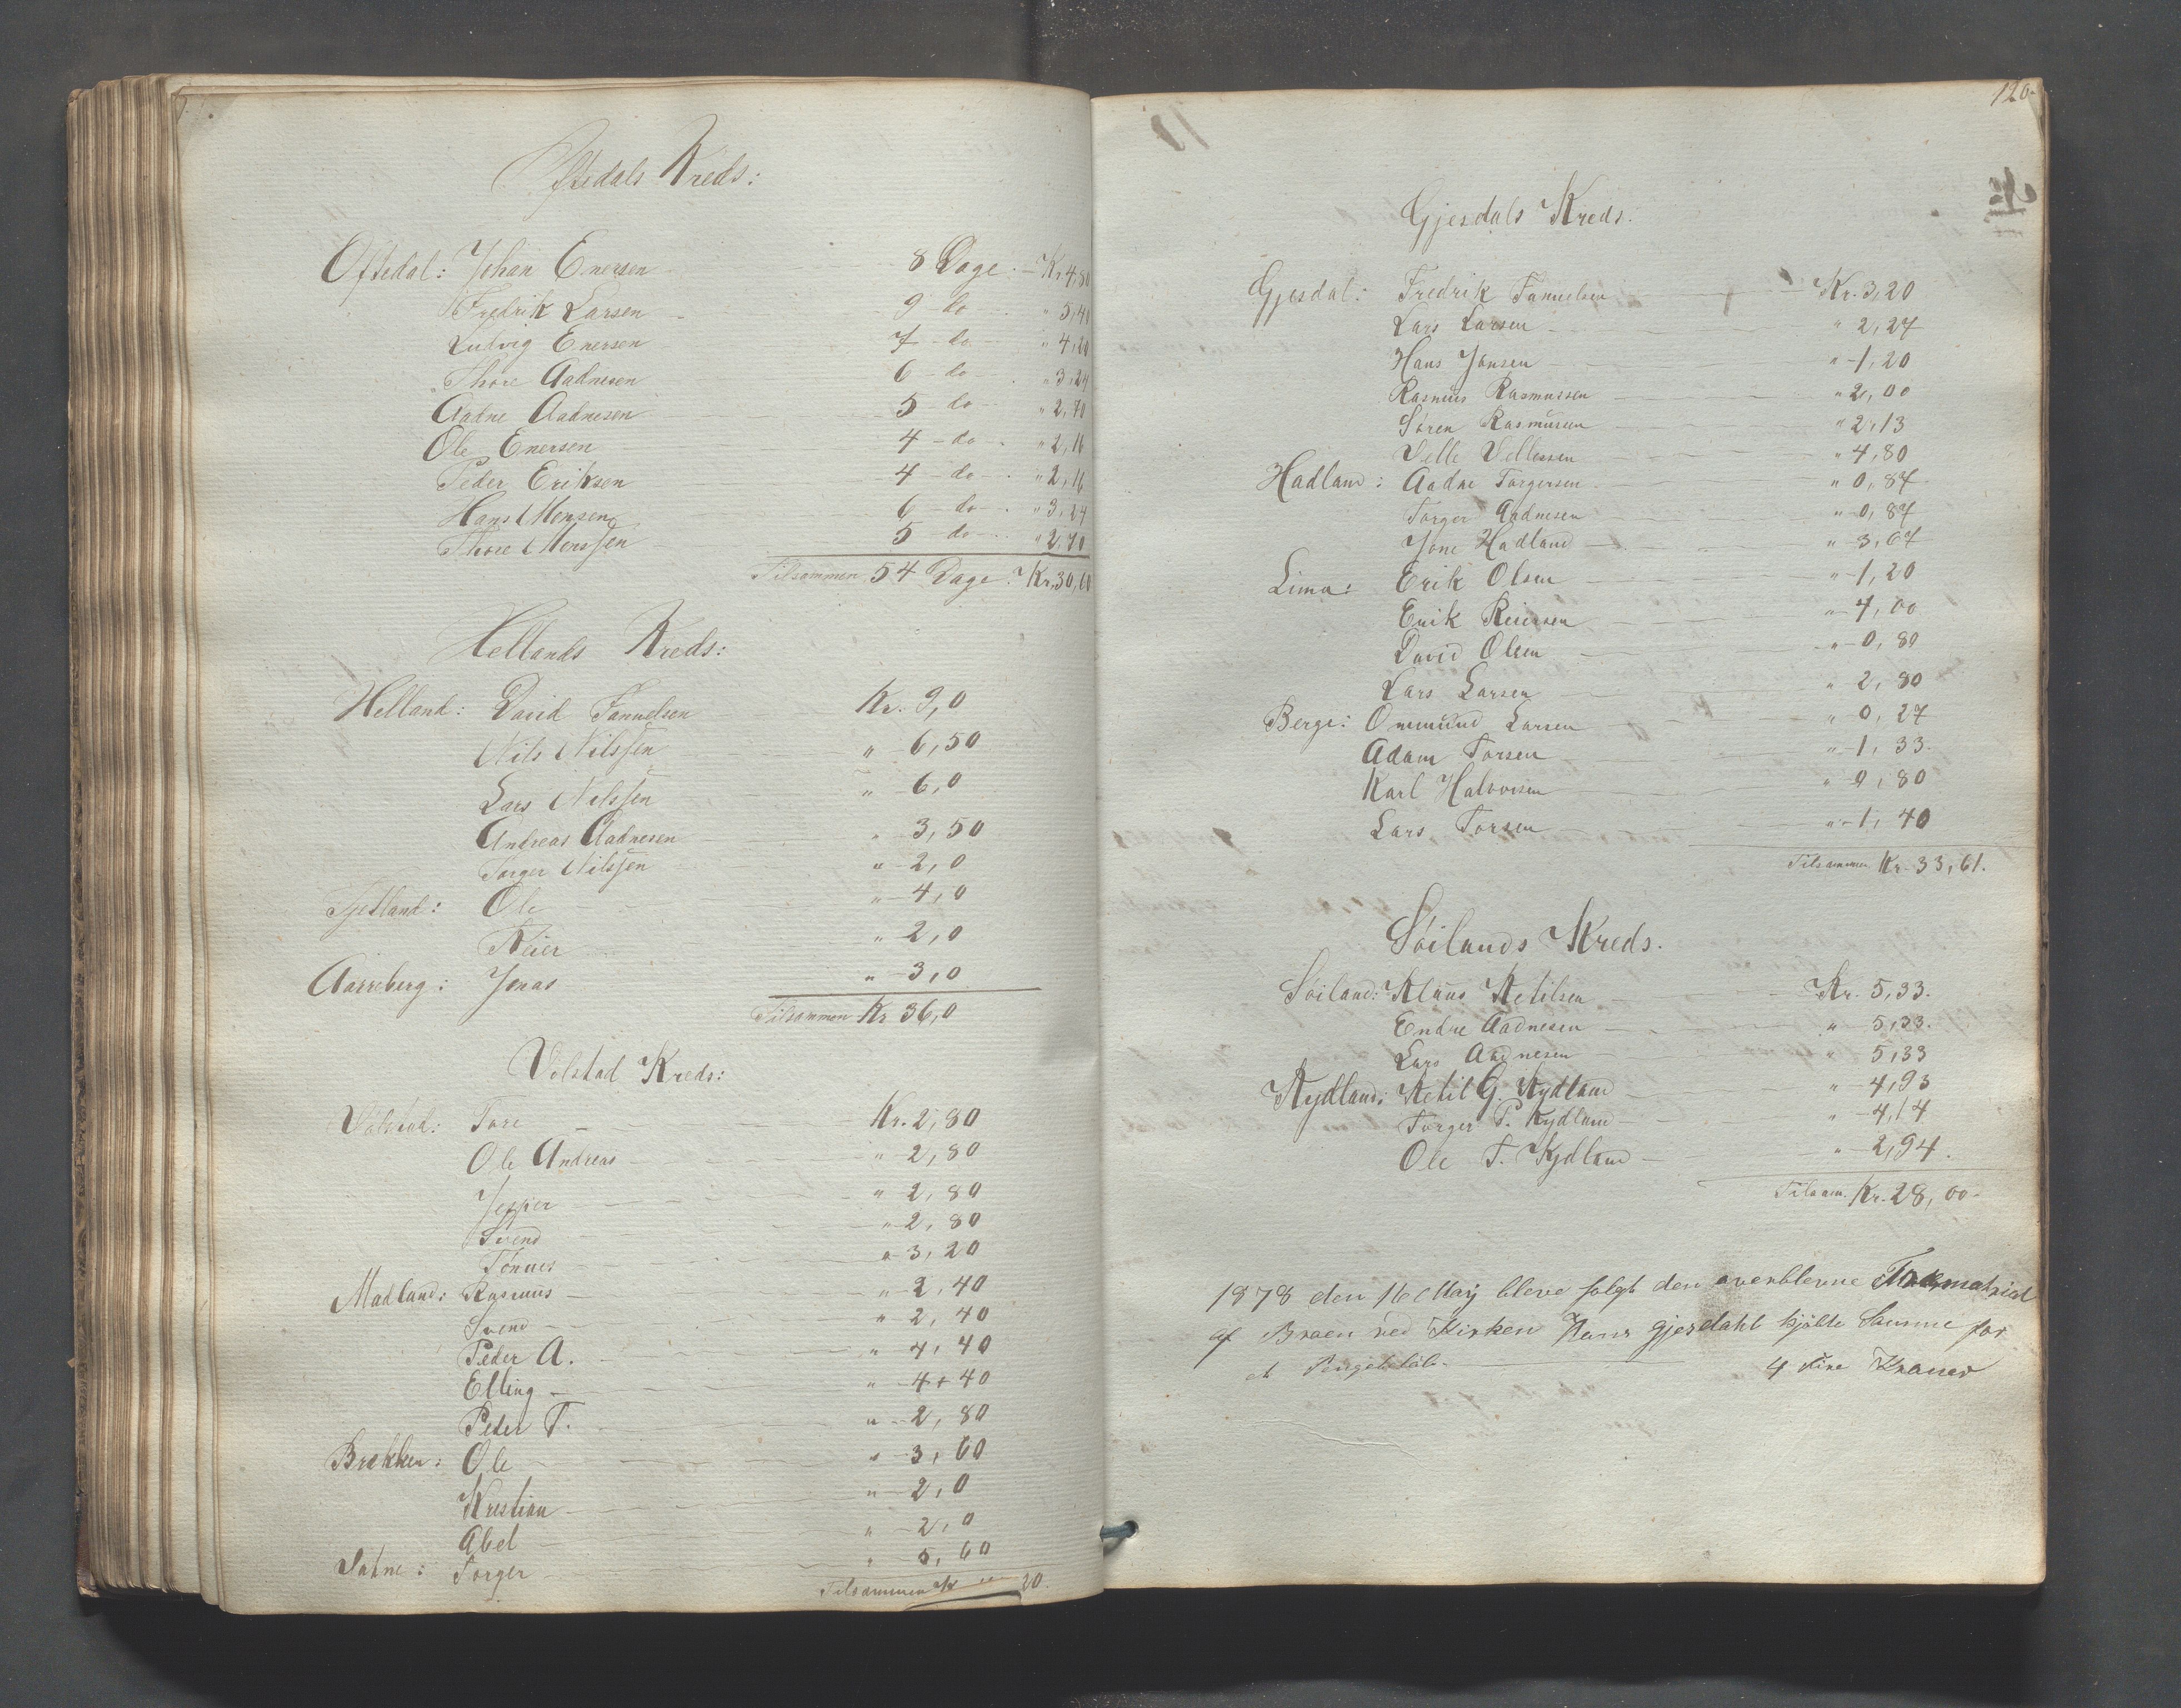 Oftedals Kreds:
Oftedal: Johan Enersen 8 Dage. Kr. 4,80
Fredrik Larsen 9 do " 5,40
Ludvig Enersen 7 do " 4,20
Thore Aadnesen 6 do " 3,24
Aadne Aadnesen 5 do " 2,70
Ole Enersen 4 do " 2,16
Peder Eriksen 4 do " 2,16
Hans Monsen 6 do " 3,24
Thore Monssen 5 do " 2,70
Tilsammen 54 Dage. Kr. 30,60
Hellands Kreds:
Helland: David Samuelsen Kr. 9,0
Nils Nilssen " 6,50
Lars Nilssen " 6,0
Andreas Aadnesen " 3,50
Torger Nilssen " 2,0
Tjetland: Ole " 4,0
Reier " 2,0
Aarreberg: Jonas " 3,0
Tilsammen Kr 36,0
Volstad Kreds:
Volstad: Tore Kr. 2,80
Ole Andreas " 2,80
Jepper " 2,80
Svend " 2,80
Tönnes " 3,20
Madland: Rasmus " 2,40
Svend " 2,40
Peder A. " 4,40
Elling " 4,40
Peder T. " 2,80
Brekken: Ole " 3,60
Kristian " 2,0
Abel " 2,0
Torger " 5,60
Tilsammen
120.
Gjesdals Kreds.
Gjesdal: Fredrik Samuelsen Kr. 3,20
Lars Larsen " 2,27
Hans Jonsen " 1,20
Rasmus Rasmussen " 2,00
Sören Rasmusen " 2,13
Velle Vellessen " 4,80
Hadland: Aadne Torgersen " 0,87
Torger Aadnesen " 0,87
Jone Hadland " 3,67
Lima: Erik Olsen " 1,20
Erik Reiersen " 4,00
David Olsen " 0,80
Lars Larsen " 2,80
Berge: Ommund Larsen " 0,27
Adam Torsen " 1,33
Karl Halvorsen " 0,80
Lars Torsen " 1,40
Tilsammen Kr. 33,61.
Söilands Kreds.
Söiland: Klaus Ketilsen Kr. 5,33.
Endre Aadnesen " 5,33.
Lars Aadnesen " 5,33
Kydland: Ketil G. Kydland " 4,93
Torger T. Kydland " 4,14
Ole T. Kydland " 2,94.
Tilsam. Kr. 28,00.
1878 den 16 May bleve solgt den overblevne
af Broen ved Kirken Hans Gjesdahl kjöbte Samme for
et 4 fire Kroner